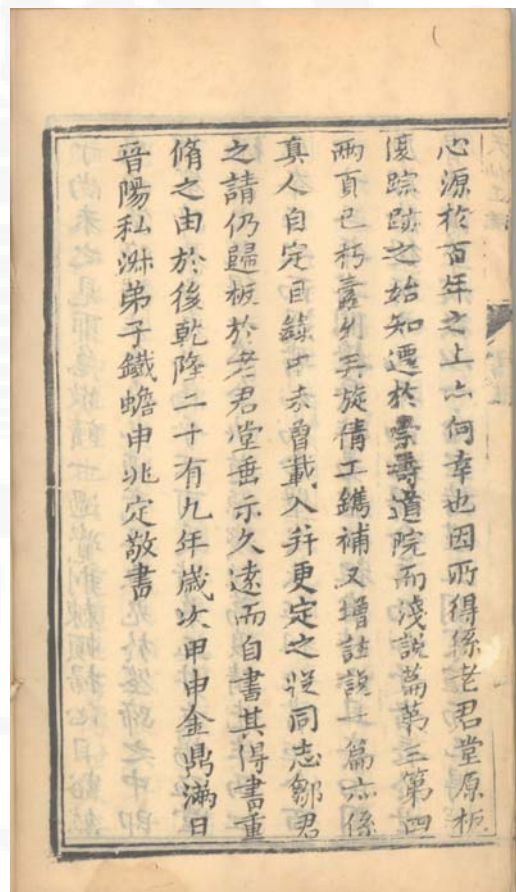 心源於百年之上亦何幸也因所得係老君堂原板
復踪跡之始知遷於崇壽道院而淺說篇第三第四
兩頁已朽蠹外矣旋倩工鐫補又增註說二篇亦係
真人自定目錄中未曾載入并更定之從同志鄒君
之請仍歸板於老君堂垂示久遠而自書其得書重
脩之由於後乾隆二十有九年歲次甲申金鼎滿日
晉陽私淑弟子鐵蟾申兆定敬書